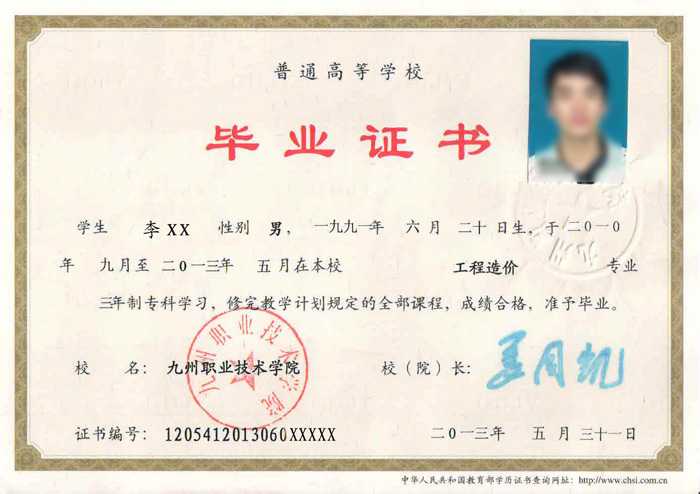 普通高等学校
毕业证书
学生 李XX 性别 男，一九九一年 六月 二十日生，于二〇一〇
年 九月至 二〇一三年 五月在本校 工程造价 专业
三年制专科学习，修完教学计划规定的全部课程，成绩合格，准予毕业。
校 名：九州职业技术学院 校（院）长：
九州职业技术学院
证书编号：1205412013060XXXXX 二〇一三年 五月 三十一日
中华人民共和国教育部学历证书查询网址：http://www.chsi.com.cn